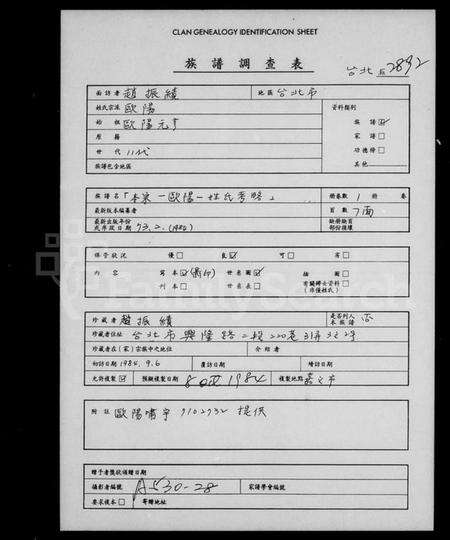 CLAN GENEALOGY IDENTIFICATION SHEET
族譜調查表
台北 2892
面訪者 趙振績 地區 台北市
姓氏宗派 歐陽 資料類別
始祖 歐陽元亨 族譜☑
原籍 家譜□
世代 11代 功德榜□
族譜包含地區 其他
族譜名「本宗一歐陽一姓氏考略」 冊卷數 1 冊卷
最新版本編著者 頁數 7面
最新出版年份或序跋日期 73.2.(1984) 缺冊缺頁部份損壞
保管狀況 優□ 良☑ 可□ 劣□
內容 寫本☑(影印) 世系圖☑ 插圖□
刊本□ 世系表□ 有關紳士資料(非僅姓氏)□
珍藏者 趙振績 是否列入本族譜 否
珍藏者住址 台北市興隆路二段220巷31弄3之2號
珍藏者在(家)宗族中之地位 介紹者
初訪日期 1984.9.6 覆訪日期 續訪日期
允許複製☑ 預擬複製日期 8 Oct 1984 複製地點 嘉之市
附註 歐陽嘯宇 9102932 提供
贈予者獎狀頒贈日期
攝影者編號 A530-28 家譜學會編號
要求複本□ 寄贈地址